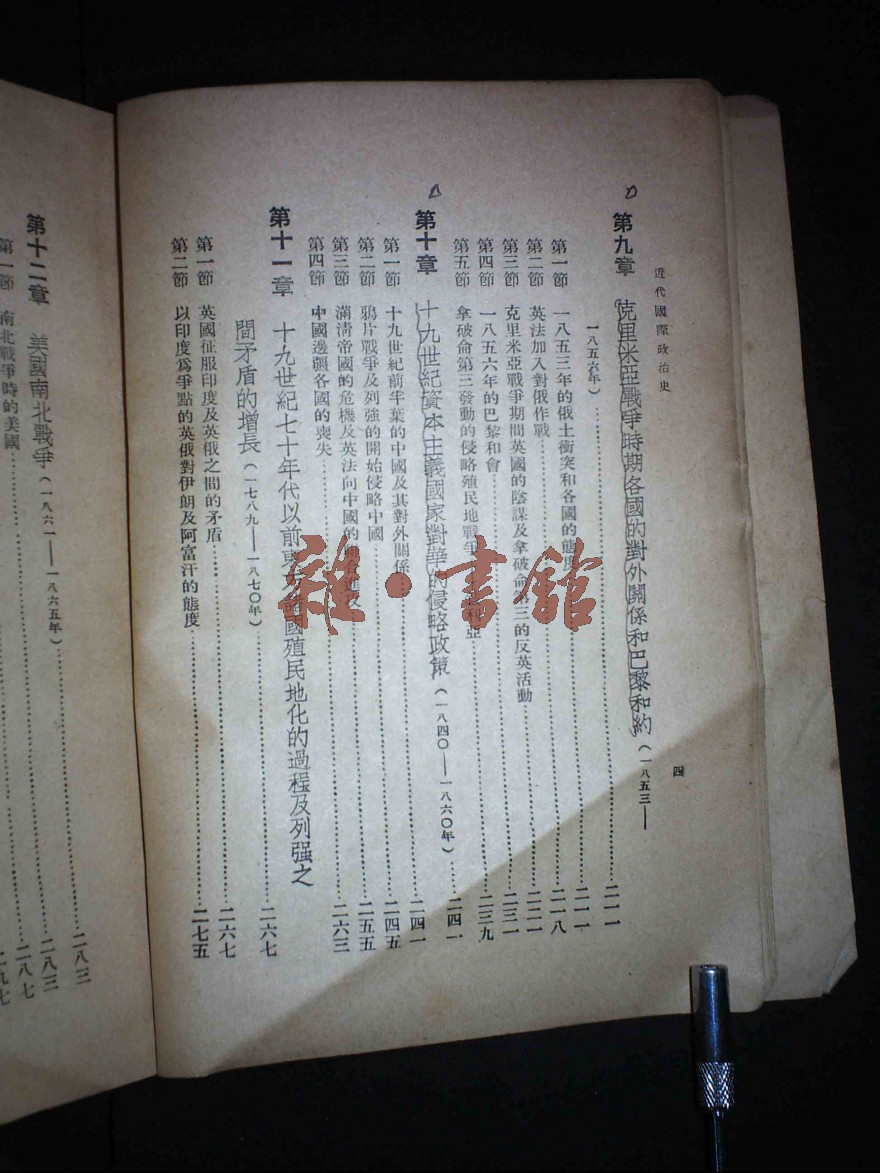 近代國際政治史 四
第九章 克里米亞戰爭時期各國的對外關係和巴黎和約(一八五三—
一八五六年)……二一一
第一節 一八五三年的俄土衝突和各國的態度……二一一
第二節 英法加入對俄作戰……二一八
第三節 克里米亞戰爭期間英國的陰謀及拿破侖第三的反英活動……二二一
第四節 一八五六年的巴黎和會……二三一
第五節 拿破侖第三發動的侵略殖民地戰爭 利亞……二三九
第十章 十九世紀資本主義國家對華的侵略政策(一八四〇—一八六〇年)……二四一
第一節 十九世紀前半葉的中國及其對外關係……二四一
第二節 鴉片戰爭及列強的開始侵略中國……二四五
第三節 滿清帝國的危機及英法向中國的聯合進攻……二五五
第四節 中國邊疆各國的喪失……二六三
第十一章 十九世紀七十年代以前東方諸國殖民地化的過程及列强之
間矛盾的增長(一七八九—一八七〇年)……二六七
第一節 英國征服印度及英俄之間的矛盾……二六七
第二節 以印度爲爭點的英俄對伊朗及阿富汗的態度……二七五
第十二章 美國南北戰爭(一八六一—一八六五年)……二八三
第一節 南北戰爭時的美國……二八三
二八七
二九七
雜·書館